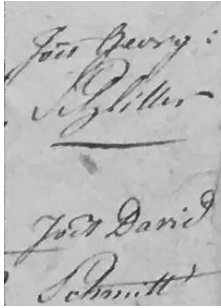 Joh Georg:
Schlitter
Joh David
Schmitt